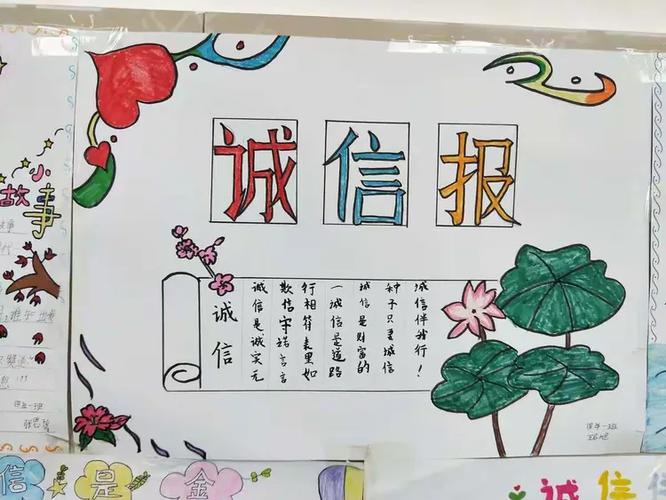 诚信报
诚信
诚信是诚实无
欺信守诺言言
行相符表里如
一诚信是道路
诚信是财富的
种子只要诚信
诚信伴我行！
四年一班
小故事
四年一班
信是金
诚信